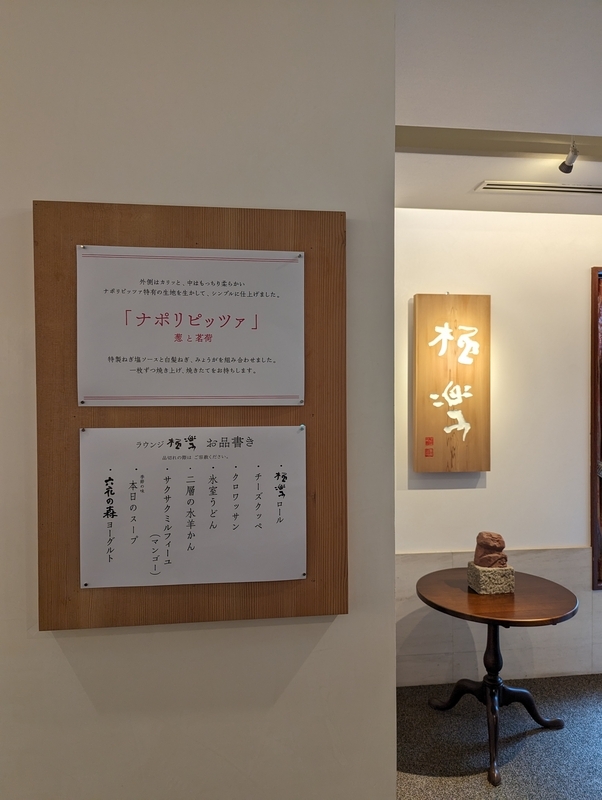 外側はカリッと、中はもっちり柔らかい
ナポリピッツァ特有の生地を生かして、シンプルに仕上げました。
「ナポリピッツァ」
葱と茗荷
特製ねぎ塩ソースと白髪ねぎ、みょうがを組み合わせました。
一枚ずつ焼き上げ、焼きたてをお持ちします。
ラウンジ 極楽 お品書き
品切れの際はご容赦ください。
・極楽ロール
・チーズクッペ
・クロワッサン
・氷室うどん
・二層の水羊かん
・サクサクミルフィーユ
(マンゴー)
・本日のスープ
・六花の森ヨーグルト
極楽